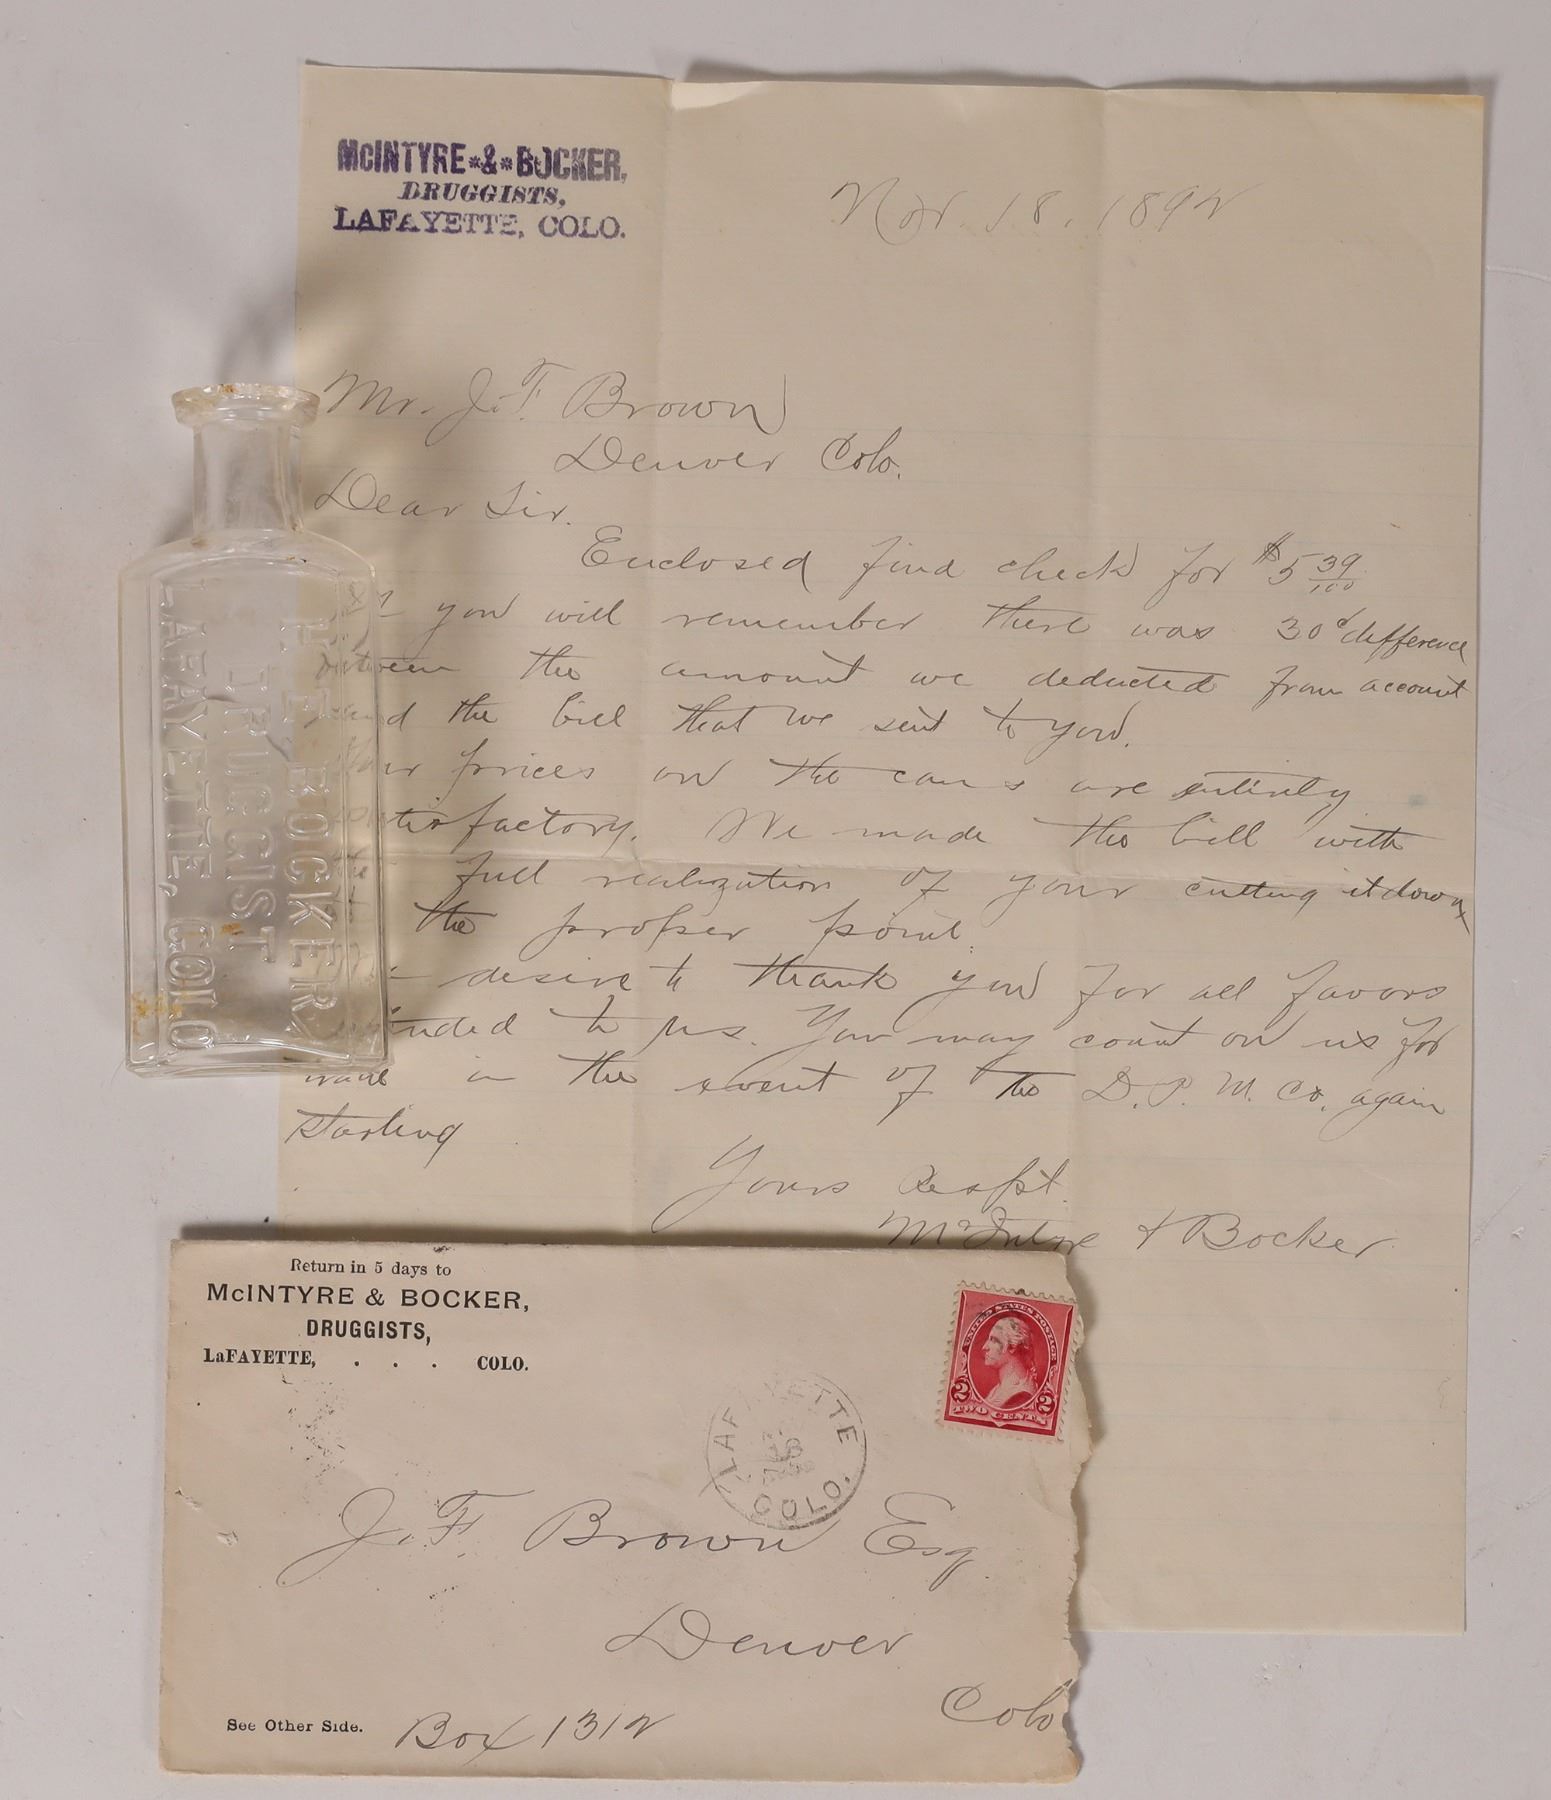 McINTYRE * & * BOCKER,
DRUGGISTS,
LAFAYETTE, COLO.
Nov. 18. 1892
Mr. J. F. Brown
Denver Colo.
Dear Sir.
Enclosed find check for $5 39/100
you will remember there was 30¢ difference
between the amount we deducted from account
and the bill that we sent to you.
Your prices on the cans are entirely
satisfactory. We made the bill with
the full realization of your cutting it down
the proper point.
We desire to thank you for all favors
extended to us. You may count on us for
trade in the event of the D. P. M. Co. again
starting
Yours Respt.
McIntyre & Bocker
H. E. BOCKER
DRUGGIST
LAFAYETTE, COLO
Return in 5 days to
McINTYRE & BOCKER,
DRUGGISTS,
LaFAYETTE, . . . COLO.
UNITED STATES POSTAGE
2 2
TWO CENTS
LAFAYETTE
18
COLO.
J. F. Brown Esq
Denver
Colo
See Other Side.
Box 1312